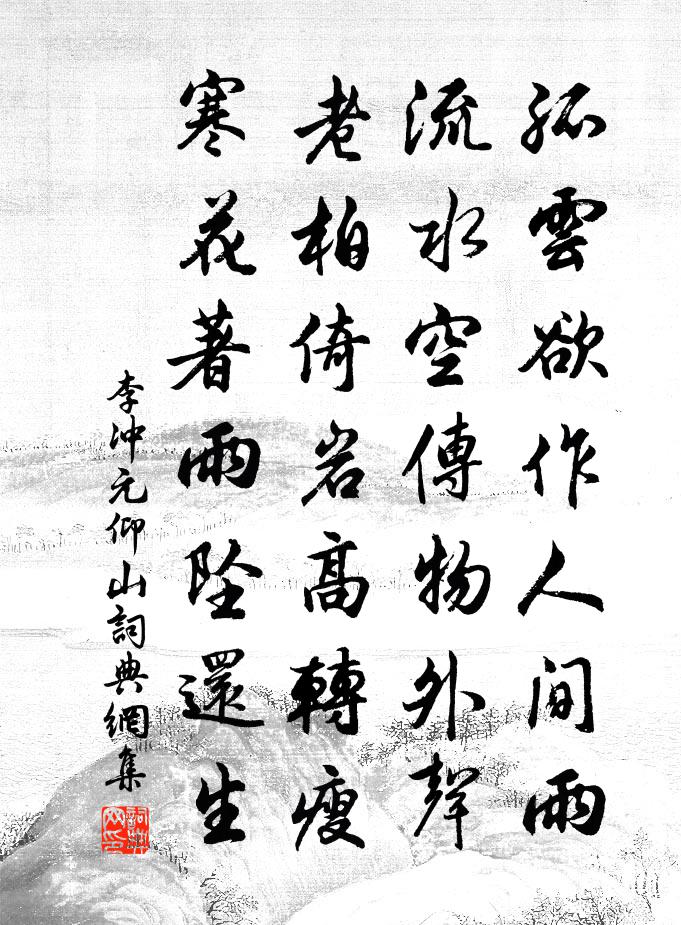 孤雲欲作人间雨
流水空傳物外聲
老柏倚岩高轉瘦
寒花著雨墜還生
李沖元仰山詞典網集
詞典网印